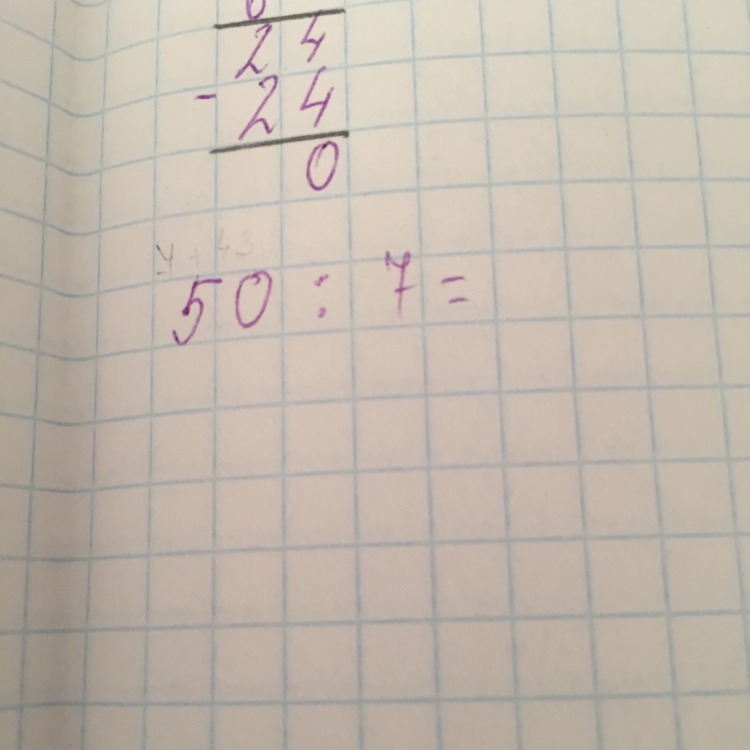 24
- 24
0
50 : 7 =